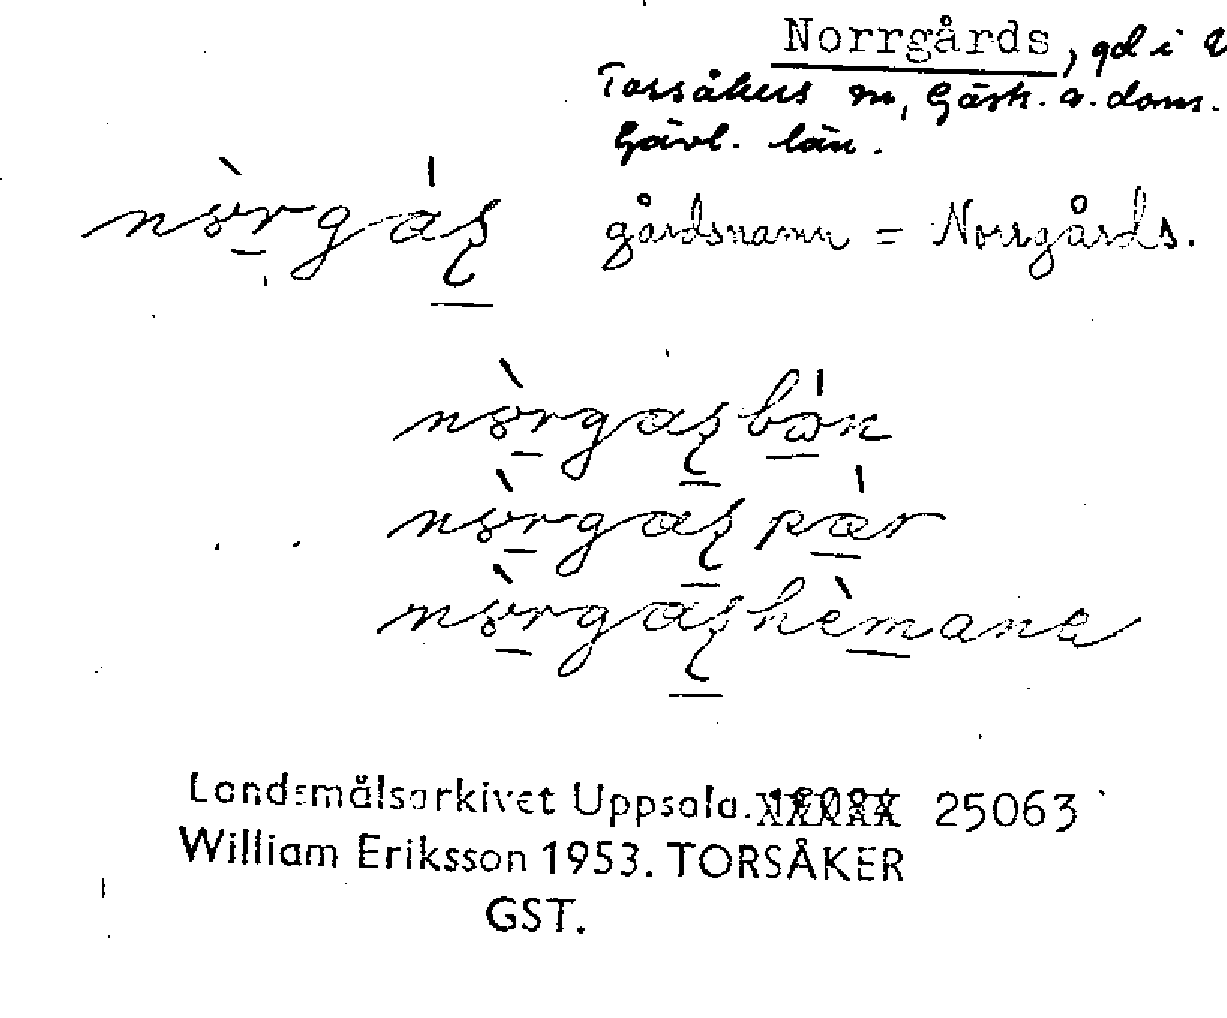 Norrgårds, gd i
Torsåkers sn, Gästr. ö. doms.
Gävl. län.
nòrgáʂ gårdsnamn = Norrgårds.
nòrgaʂbón
nòrgaʂ pár
nòrgaʂhèmana
Landsmålsarkivet Uppsala. 25063
William Eriksson 1953. TORSÅKER
GST.